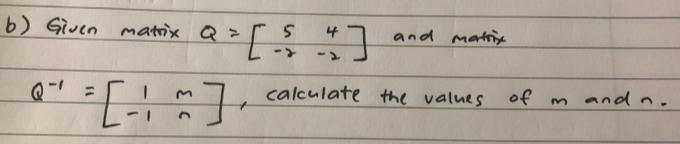 b) Given matrix Q = [ 5 4 ] and matrix
[ -2 -2 ]
Q⁻¹ = [ 1 m ], calculate the values of m and n.
[ -1 n ]